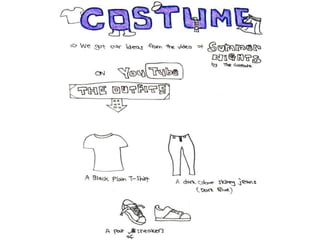 COSTUME
⇨ We got our ideas from the video of SUMMER NIGHTS
by The
on YouTube
THE OUTFITS
A Black Plain T-Shirt
A dark colour skinny jeans
(Dark Blue)
A pair of sneakers